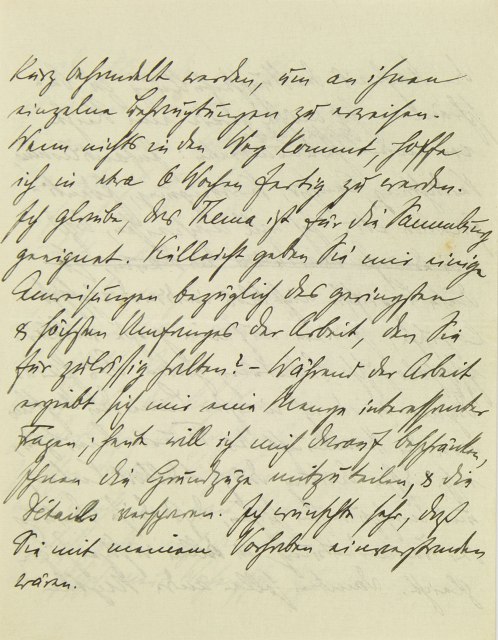 kurz behandelt werden, um an ihnen
einzelne Befruchtungen zu erweisen.
Wenn nichts in den Weg kommt, hoffe
ich in etwa 6 Wochen fertig zu werden.
Ich glaube, das Thema ist für die Sammlung
geeignet. Vielleicht geben Sie mir einige
Anweisungen bezüglich des geringsten
& höchsten Umfanges der Arbeit, den Sie
für zulässig halten? – Während der Arbeit
ergiebt sich mir eine Menge interessanter
Fragen; heute will ich mich darauf beschränken,
Ihnen die Grundzüge mitzuteilen, & die
Details versparen. Ich wünschte sehr, daß
Sie mit meinem Vorhaben einverstanden
wären.